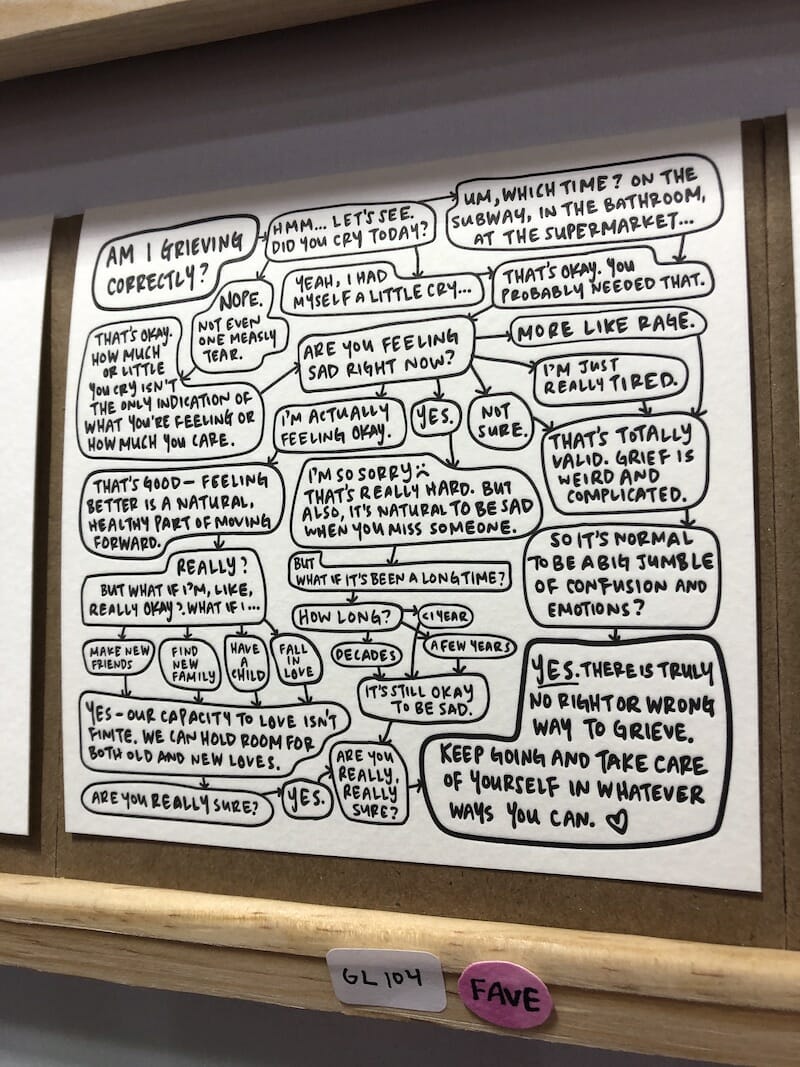 AM I GRIEVING
CORRECTLY?
HMM... LET'S SEE.
DID YOU CRY TODAY?
UM, WHICH TIME? ON THE
SUBWAY, IN THE BATHROOM,
AT THE SUPERMARKET...
NOPE.
NOT EVEN
ONE MEASLY
TEAR.
YEAH, I HAD
MYSELF A LITTLE CRY...
THAT'S OKAY. YOU
PROBABLY NEEDED THAT.
THAT'S OKAY.
HOW MUCH
OR LITTLE
YOU CRY ISN'T
THE ONLY INDICATION OF
WHAT YOU'RE FEELING OR
HOW MUCH YOU CARE.
ARE YOU FEELING
SAD RIGHT NOW?
MORE LIKE RAGE.
I'M JUST
REALLY TIRED.
I'M ACTUALLY
FEELING OKAY.
YES.
NOT
SURE.
THAT'S TOTALLY
VALID. GRIEF IS
WEIRD AND
COMPLICATED.
THAT'S GOOD – FEELING
BETTER IS A NATURAL,
HEALTHY PART OF MOVING
FORWARD.
I'M SO SORRY :(
THAT'S REALLY HARD. BUT
ALSO, IT'S NATURAL TO BE SAD
WHEN YOU MISS SOMEONE.
SO IT'S NORMAL
TO BE A BIG JUMBLE
OF CONFUSION AND
EMOTIONS?
REALLY?
BUT WHAT IF I'M, LIKE,
REALLY OKAY? WHAT IF I...
BUT
WHAT IF IT'S BEEN A LONG TIME?
HOW LONG?
<1 YEAR
DECADES
A FEW YEARS
MAKE NEW
FRIENDS
FIND
NEW
FAMILY
HAVE
A
CHILD
FALL
IN
LOVE
IT'S STILL OKAY
TO BE SAD.
YES – OUR CAPACITY TO LOVE ISN'T
FINITE. WE CAN HOLD ROOM FOR
BOTH OLD AND NEW LOVES.
ARE YOU REALLY SURE?
YES.
ARE YOU
REALLY,
REALLY
SURE?
YES. THERE IS TRULY
NO RIGHT OR WRONG
WAY TO GRIEVE.
KEEP GOING AND TAKE CARE
OF YOURSELF IN WHATEVER
WAYS YOU CAN. ♡
GL 104
FAVE